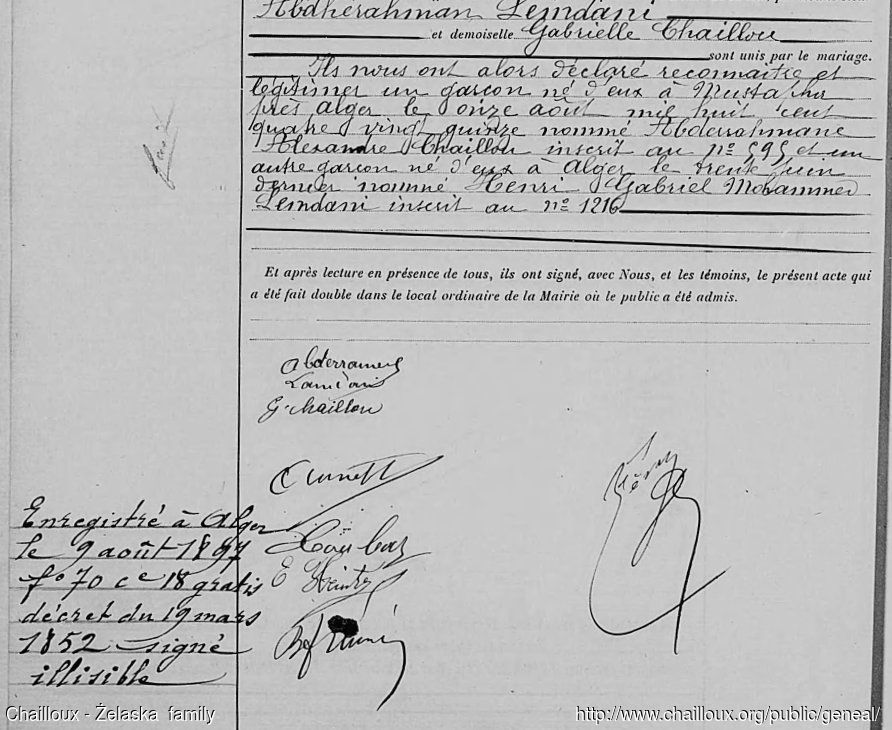 Abdherahman Lemdani
et demoiselle Gabrielle Chaillou
sont unis par le mariage.
Ils nous ont alors déclaré reconnaitre et
légitimer un garçon né d'eux à Mustapha
près Alger le onze août mil huit cent
quatre vingt quinze nommé Abderrahmane
Alexandre Chaillou inscrit au n° 595 et un
autre garçon né d'eux à Alger le trente juin
dernier nommé Henri Gabriel Mohammed
Lemdani inscrit au n° 1216
Et après lecture en présence de tous, ils ont signé, avec Nous, et les témoins, le présent acte qui
a été fait double dans le local ordinaire de la Mairie où le public a été admis.
Abderramen
Lamdani
G. Chaillou
Enregistré à Alger
le 9 août 1897
f° 70 ce 18 gratis
décret du 19 mars
1852 signé
illisible
E Heintz
Chailloux - Żelaska family
http://www.chailloux.org/public/geneal/